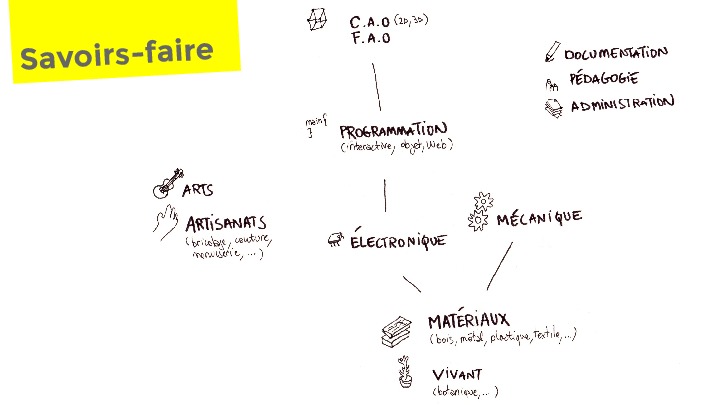 Savoirs-faire
C.A.O (2D, 3D)
F.A.O
DOCUMENTATION
PÉDAGOGIE
ADMINISTRATION
main{
}
PROGRAMMATION
(interactive, objet, Web)
ARTS
ARTISANATS
(bricolage, couture,
menuiserie, ...)
ÉLECTRONIQUE
MÉCANIQUE
MATÉRIAUX
(bois, métal, plastique, Textile, ...)
VIVANT
(botanique, ...)